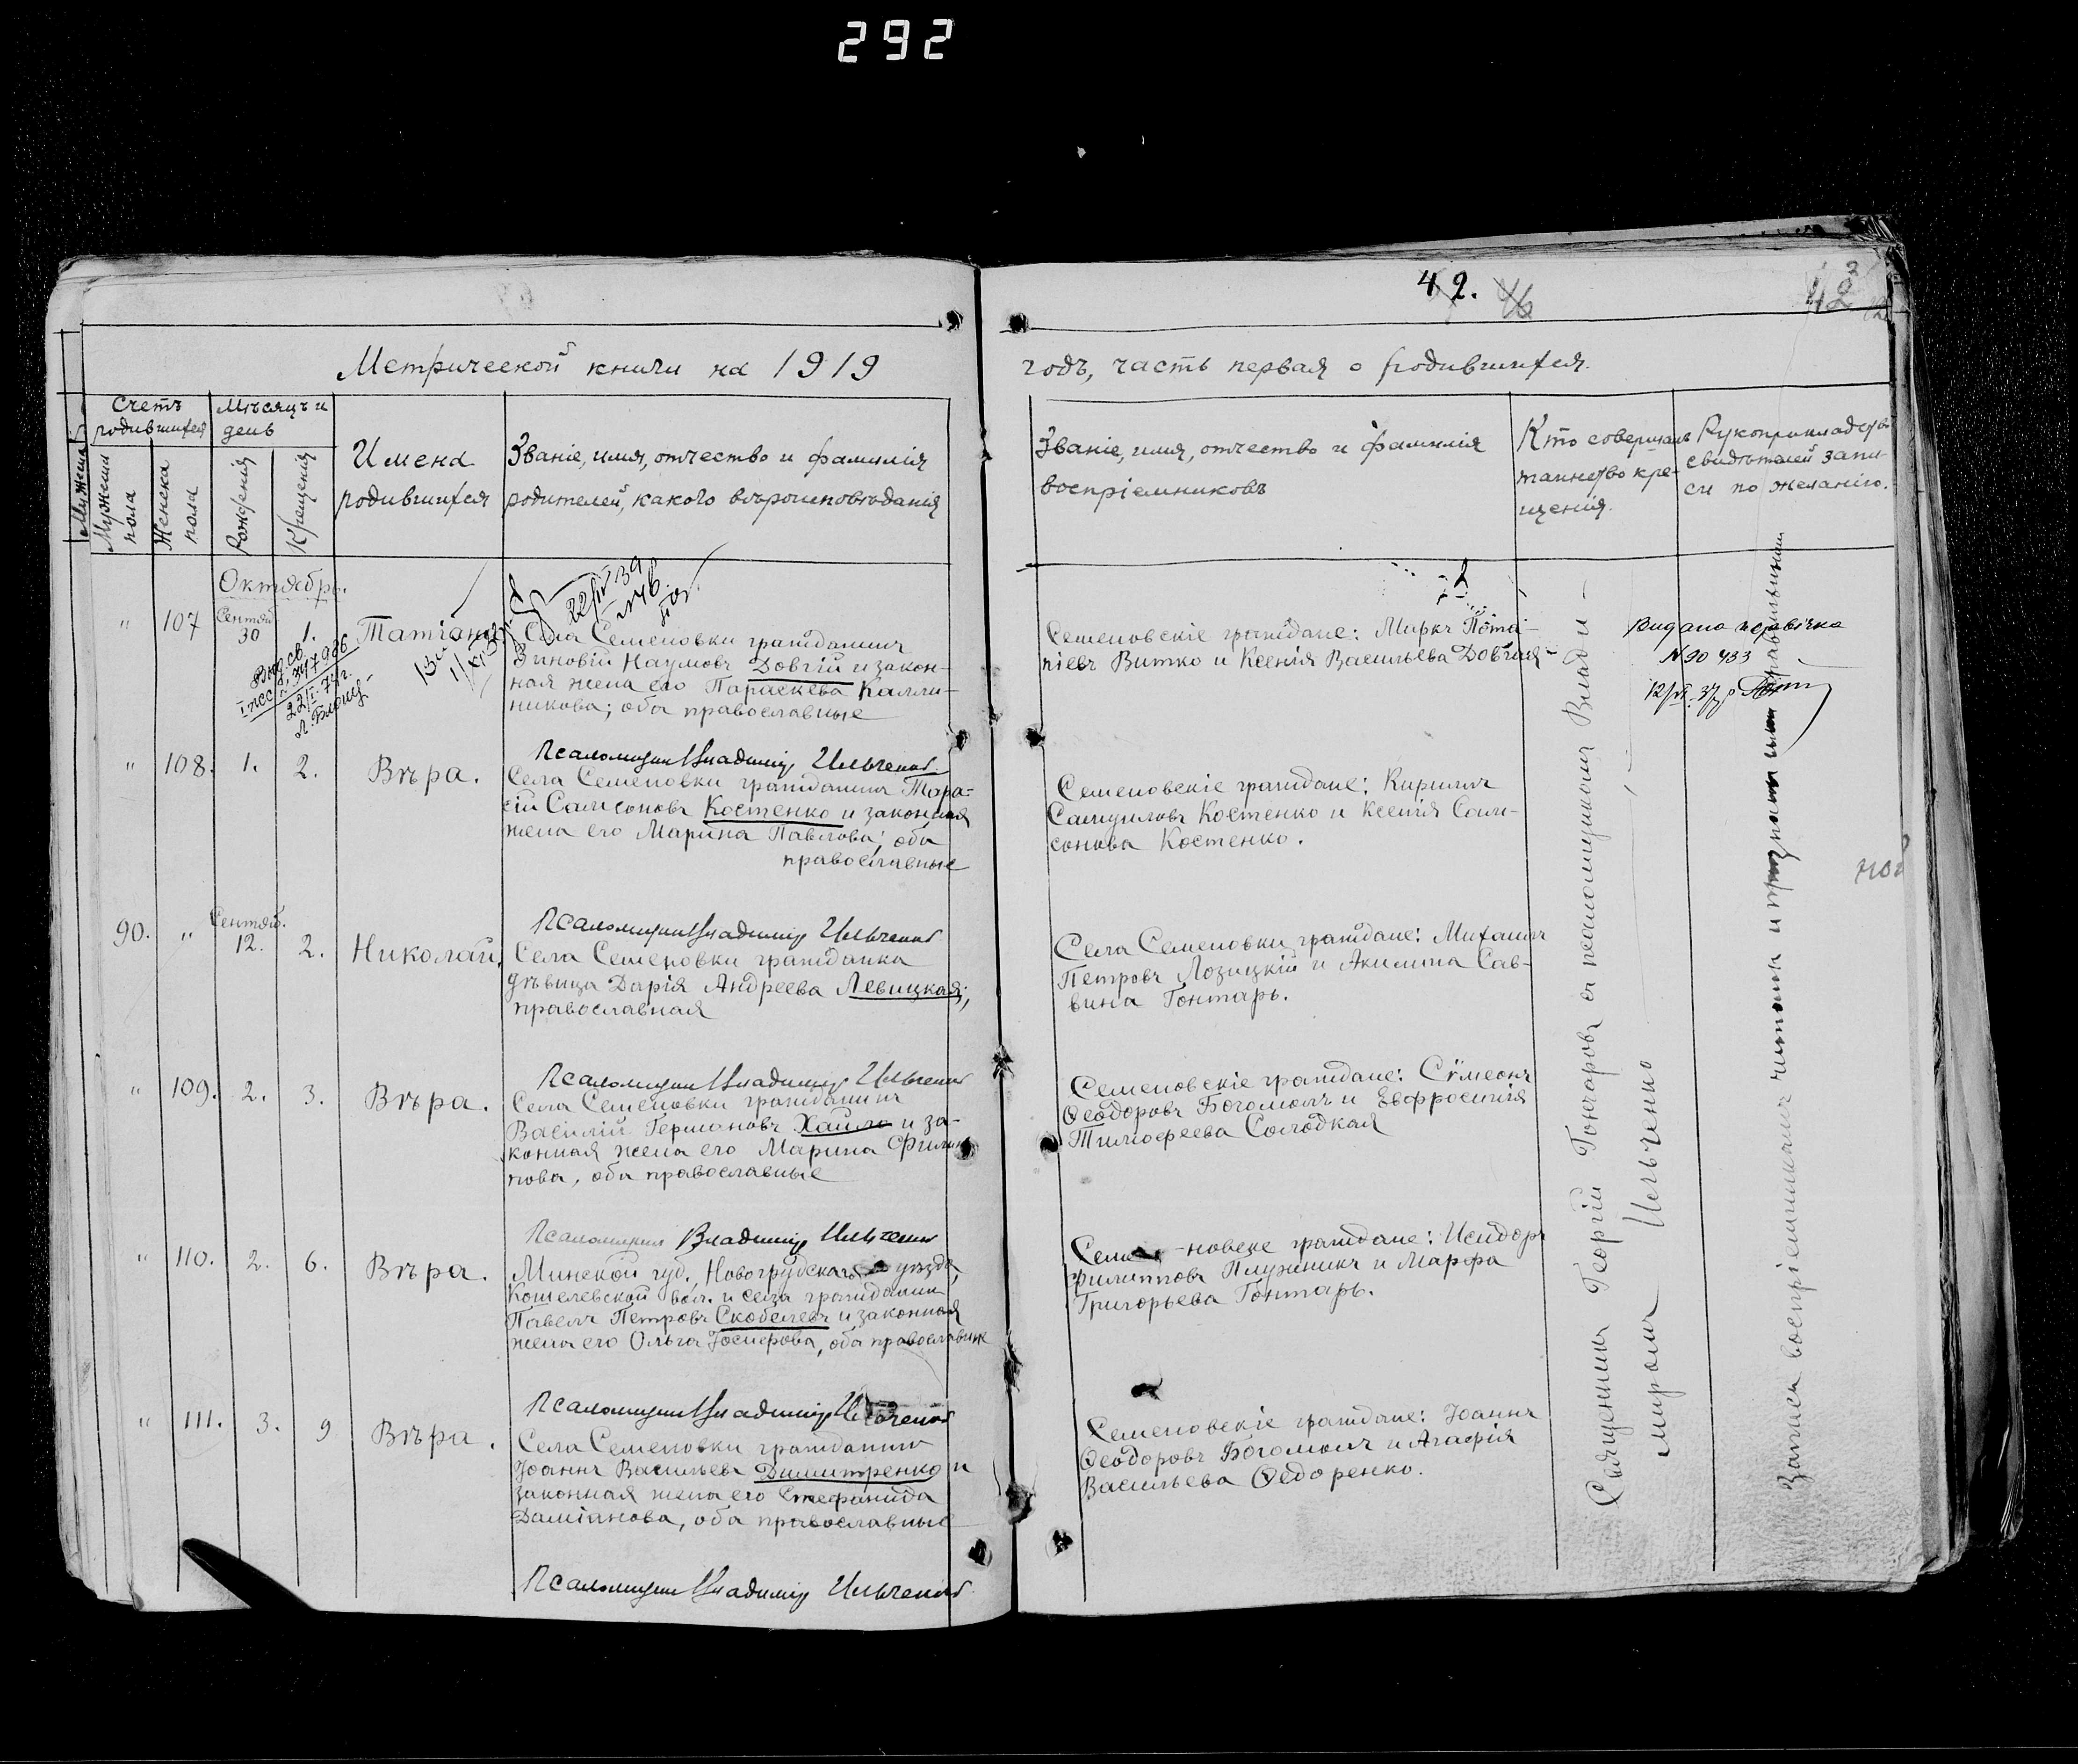 292
42.
46
Метрической книги на 1919
годъ, часть первая о родившихся.
Счетъ родившихся
Мѣсяцъ и день
Мужеска пола
Женска пола
Рожденія
Крещенія
Имена
родившихся
Званіе, имя, отчество и фамилія
родителей, какого вѣроисповѣданія
Званіе, имя, отчество и фамилія
воспріемниковъ
Кто совершалъ
таинство кре-
щенія.
Рукоприкладство
свидѣтелей запи-
си по желанію.
Октябрь.
22/IV 39
" 107 Сентяб. 30 1. Татіана
Вид. св.
22/I. 74г.
Села Семеновки гражданинъ
Зиновій Наумовъ Довгій и закон-
ная жена его Параскева Калли-
никова; оба православные
Семеновскіе граждане: Миркъ Пота-
піевъ Витко и Ксенія Васильева Довгая
Видано
N 90 433
Псаломщикъ Владиміръ Ильченко
" 108. 1. 2. Вѣра.
Села Семеновки гражданинъ Тара-
сій Самсоновъ Костенко и законная
жена его Марина Павлова; оба
православные
Семеновскіе граждане: Кириллъ
Самуиловъ Костенко и Ксенія Сам-
сонова Костенко.
Псаломщикъ Владиміръ Ильченко
90. " Сентяб. 12. 2. Николай.
Села Семеновки гражданка
дѣвица Дарія Андреева Левицкая;
православная
Села Семеновки граждане: Михаилъ
Петровъ Лозицкій и Акилина Сав-
вина Гонтарь.
Псаломщикъ Владиміръ Ильченко
" 109. 2. 3. Вѣра.
Села Семеновки гражданинъ
Василій Германовъ Хайло и за-
конная жена его Марина Филип-
пова, оба православные
Семеновскіе граждане: Сѵмеонъ
Ѳеодоровъ Богомолъ и Евфросинія
Тимоѳеева Солодкая
Псаломщикъ Владиміръ Ильченко
" 110. 2. 6. Вѣра.
Минской губ. Новогрудскаго уѣзда,
Кошелевской вол. и села гражданинъ
Павелъ Петровъ Скобелевъ и законная
жена его Ольга Іосифова, оба православные
Семе-новске граждане: Исидоръ
Филипповъ Плужникъ и Марфа
Григорьева Гонтарь.
Псаломщикъ Владиміръ Ильченко
" 111. 3. 9 Вѣра.
Села Семеновки гражданинъ
Іоаннъ Васильевъ Димитренко и
законная жена его Стефанида
Даміанова, оба православные
Семеновскіе граждане: Іоаннъ
Ѳеодоровъ Богомолъ и Агафія
Васильева Ѳедоренко.
Псаломщикъ Владиміръ Ильченко
Священникъ Георгій Гончаровъ съ псаломщикомъ Влади-
міромъ Ильченко
Запись воспріемникамъ читана и признана ими правильною